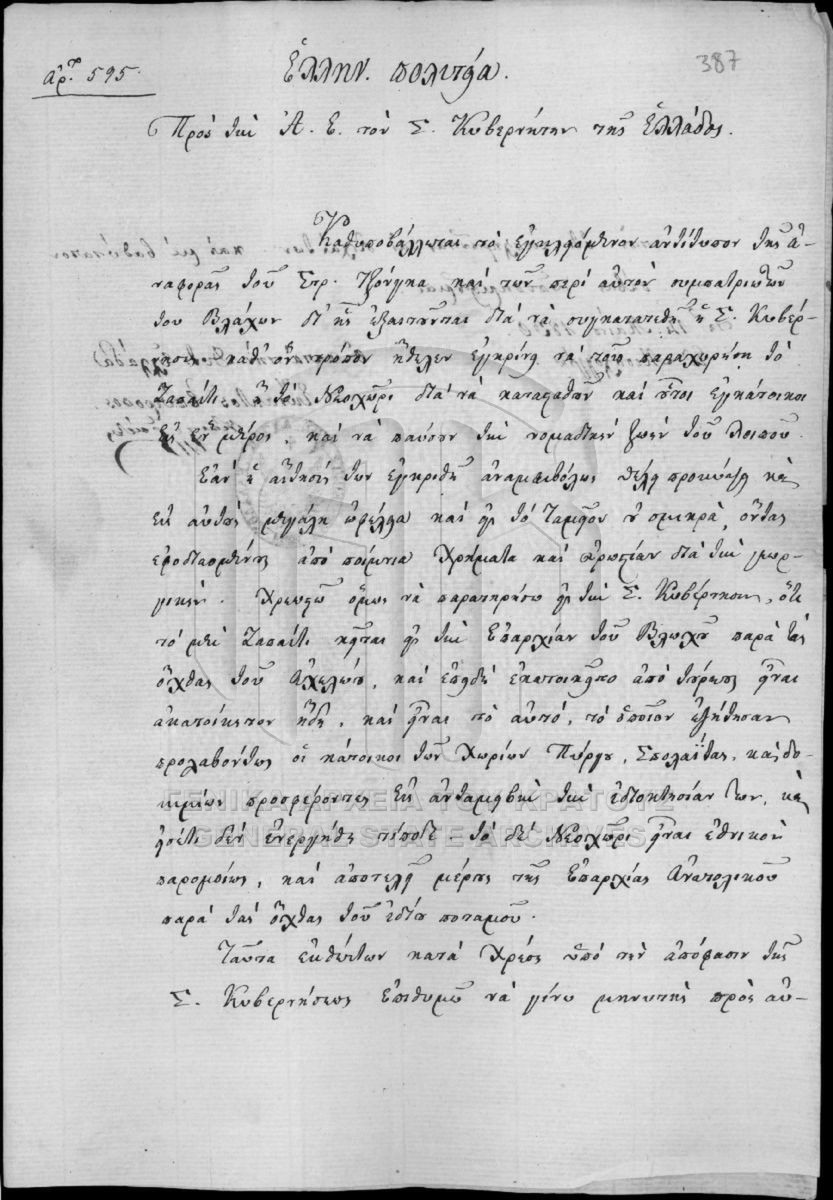 ἀρ. 595.
Ἑλλην. πολιτεία.
387
Πρὸς τὴν Ἀ. Ἐ. τὸν Σ. Κυβερνήτην τῆς Ἑλλάδος.
Καθυποβάλλεται τὸ ἐγκεκλεισμένον ἀντίτυπον τῆς ἀ-
ναφορᾶς τοῦ Σπρ. Τζόγκα καὶ τῶν περὶ αὐτὸν συμπατριωτῶν
του Βλάχων δι' ἧς ἐξαιτοῦνται διὰ νὰ συγκατατεθῇ ἡ Σ. Κυβέρ-
νησις καθ' ὃν τρόπον ἤθελεν ἐγκρίνῃ νὰ τοῖς παραχωρήσῃ τὸ
Ζαπάντι ἢ τὸ Νεοχῶρι διὰ νὰ κατασταθοῦν καὶ οὗτοι ἐγκάτοικοι
εἰς ἓν μέρος, καὶ νὰ παύσουν τὴν νομαδικὴν ζωὴν τοῦ λοιποῦ.
Ἐὰν ἡ αἴτησίς των ἐγκριθῇ ἀναμφιβόλως θέλει προκύψῃ καὶ
εἰς αὐτοὺς μεγάλη ὠφέλεια καὶ εἰς τὸ Ταμεῖον οὐ σμικρὰ, ὄντας
ἐφοδιασμένους ἀπὸ ποίμνια χρήματα καὶ προθυμίαν διὰ τὴν γεωρ-
γικήν. Χρεωστῶ ὅμως νὰ παρατηρήσω εἰς τὴν Σ. Κυβέρνησιν, ὅτι
τὸ μὲν Ζαπάντι κεῖται εἰς τὴν Ἐπαρχίαν τοῦ Βλωχοῦ παρὰ τὰς
ὄχθας τοῦ Ἀχελώου, καὶ ἐπειδὴ ἐκατοικεῖτο ἀπὸ τούρκους εἶναι
ἀκατοίκητον ἤδη, καὶ εἶναι τὸ αὐτὸ, τὸ ὁποῖον ἐζήτησαν
προλαβόντως οἱ κάτοικοι τῶν χωρίων Πύργου, Σπολαΐτας, καὶ
προσφέροντες εἰς ἀνταμοιβὴν τὴν ἰδιοκτησίαν των, καὶ
εἰσέτι δὲν ἐνεργήθη τίποτε τὸ δὲ Νεοχῶρι εἶναι ἐθνικὸν
παρομοίως, καὶ ἀποτελεῖ μέρος τῆς Ἐπαρχίας Ἀνατολικοῦ
παρὰ τὰς ὄχθας τοῦ ἰδίου ποταμοῦ.
Ταῦτα ἐκθέτων κατὰ χρέος ὑπὸ τὴν ἀπόφασιν τῆς
Σ. Κυβερνήσεως ἐπιθυμῶ νὰ γίνω μηνυτὴς πρὸς αὐ-
ΓΕΝΙΚΑ ΑΡΧΕΙΑ ΤΟΥ ΚΡΑΤΟΥΣ
GENERAL STATE ARCHIVES